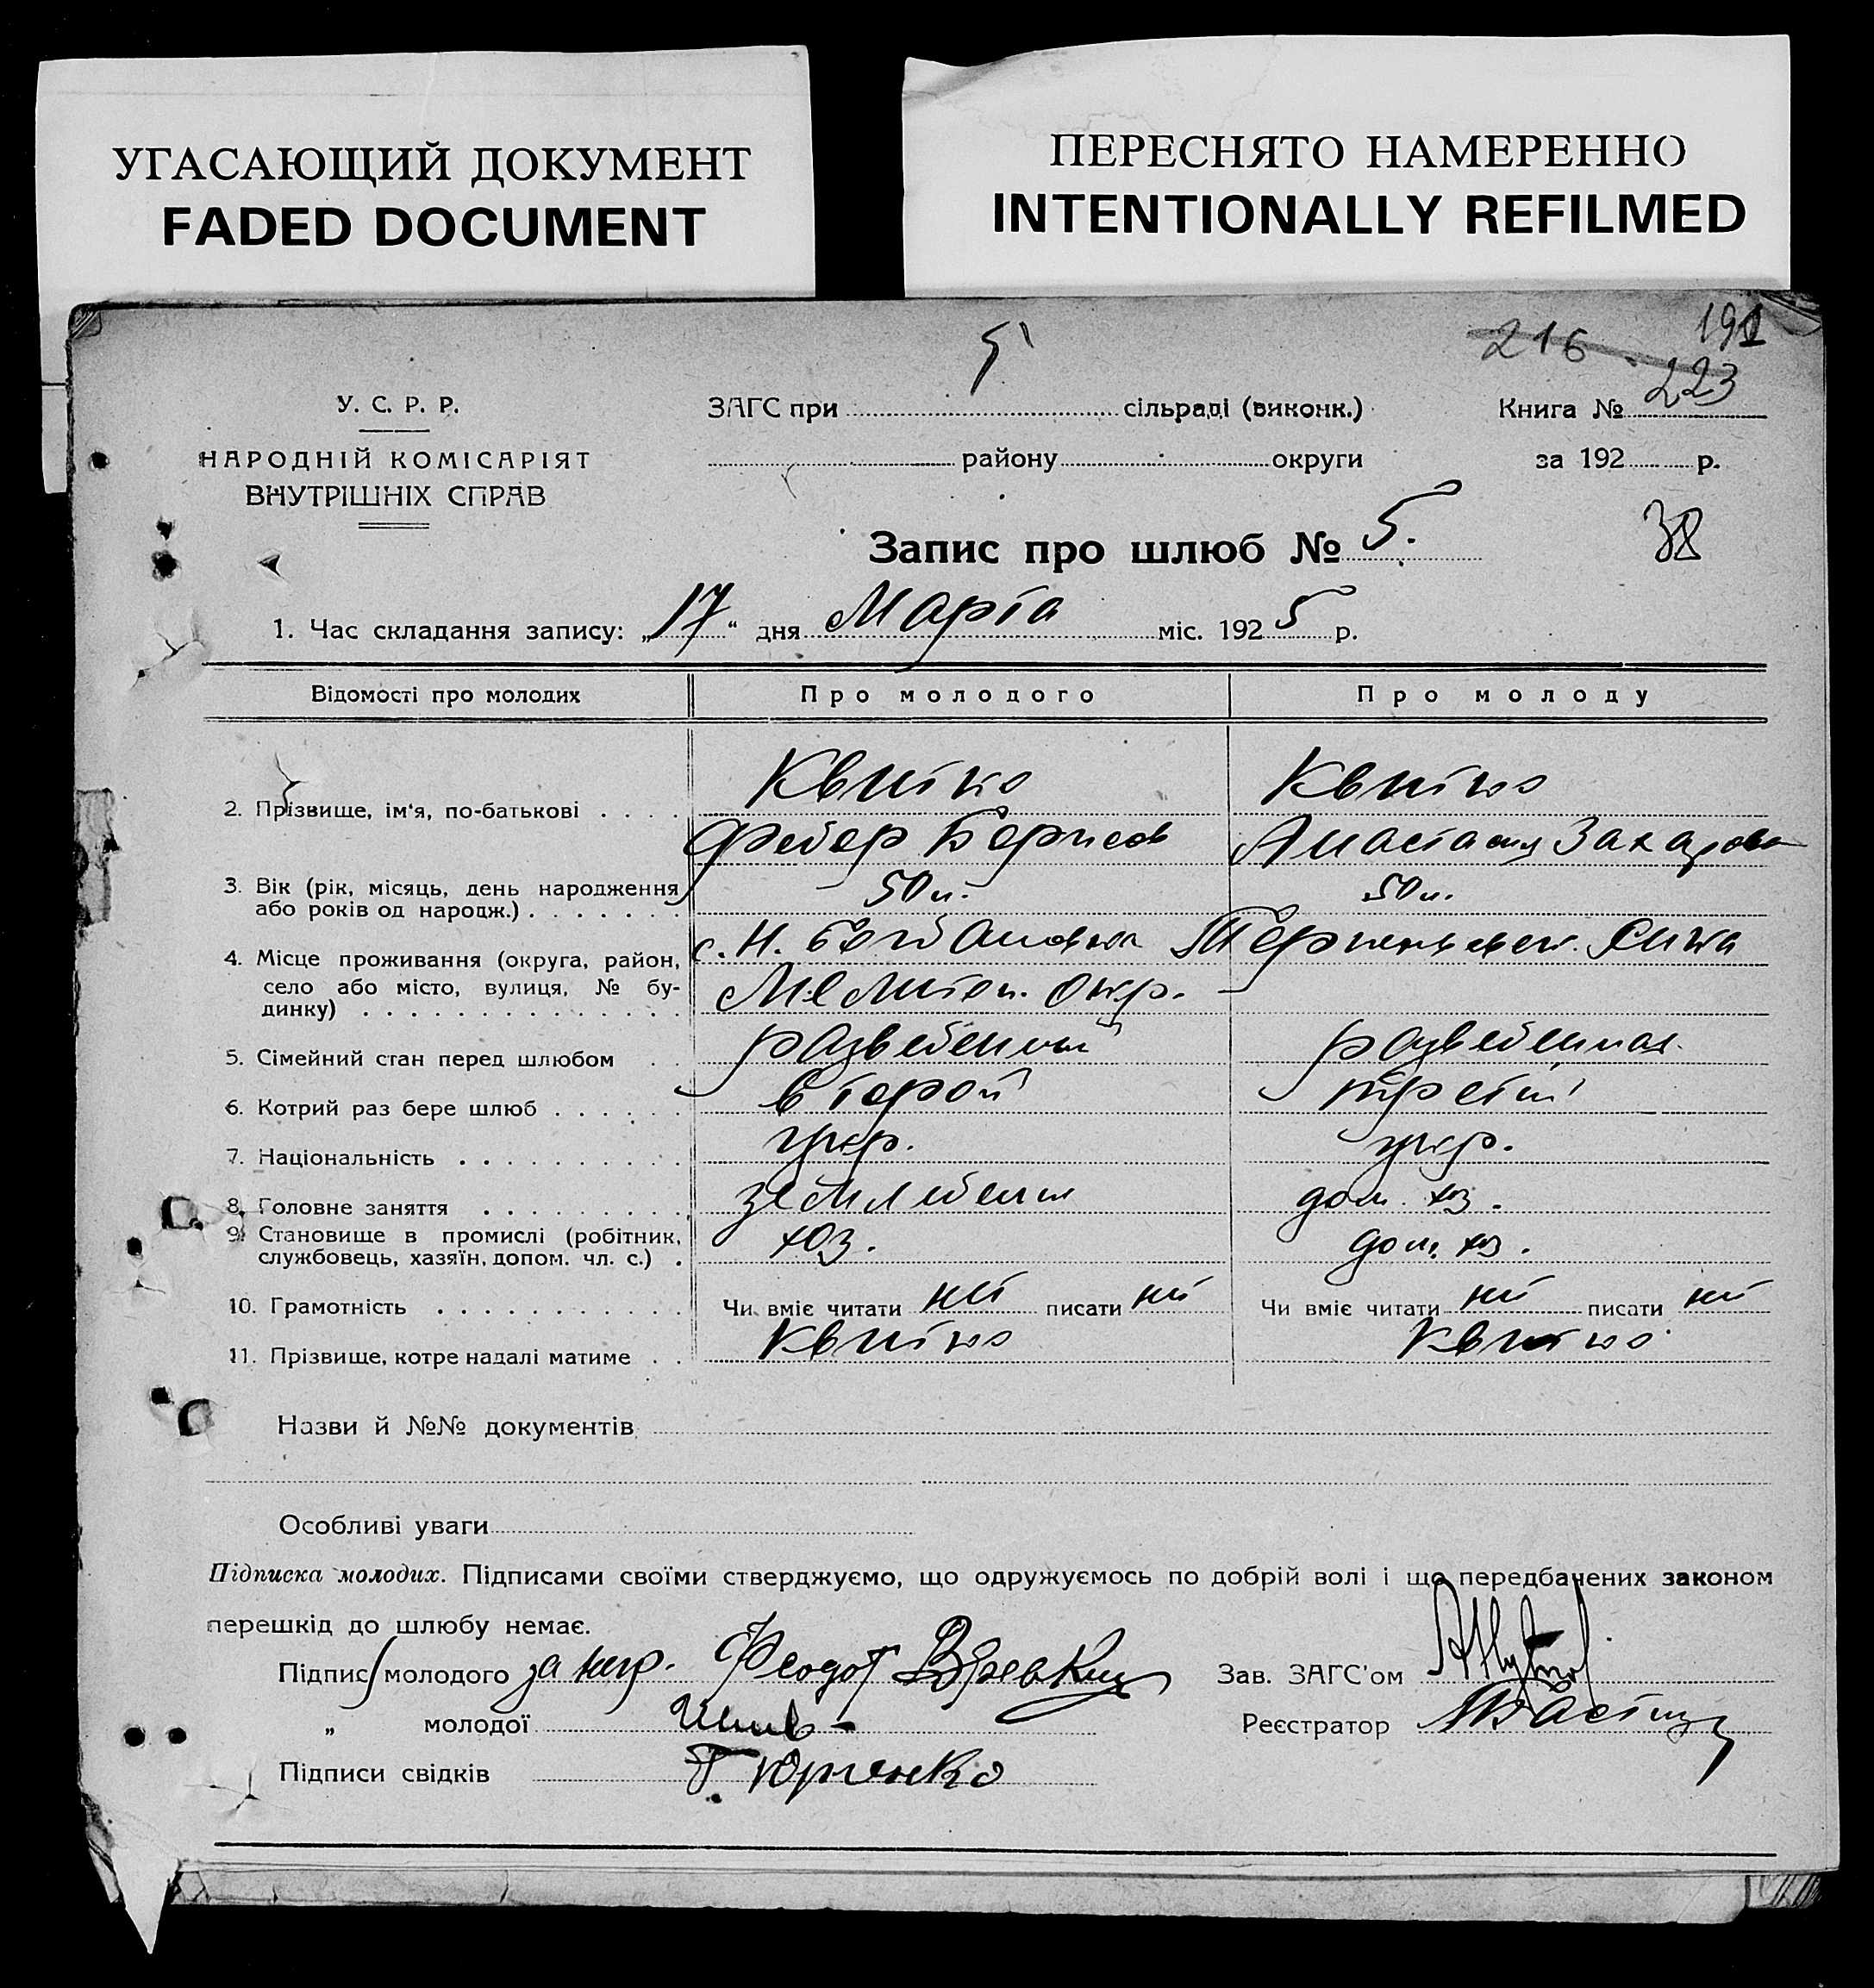 УГАСАЮЩИЙ ДОКУМЕНТ
FADED DOCUMENT
ПЕРЕСНЯТО НАМЕРЕННО
INTENTIONALLY REFILMED
216
191
223
5
У. С. Р. Р.
НАРОДНІЙ КОМІСАРІЯТ
ВНУТРІШНІХ СПРАВ
ЗАГС при сільраді (виконк.)
району округи
Книга №
за 192 р.
Запис про шлюб № 5.
38
1. Час складання запису: „17“ дня Марта міс. 1925 р.
Відомості про молодих Про молодого Про молоду
2. Прізвище, ім'я, по-батькові Квитко Квитко
Федор Борисов Анастасия Захаров
3. Вік (рік, місяць, день народження або років од народж.) 50 л. 50 л.
4. Місце проживання (округа, район, село або місто, вулиця, № будинку) с. Н. Богдановка
Мелитоп. окр.
5. Сімейний стан перед шлюбом разведенный разведенная
6. Котрий раз бере шлюб второй третий
7. Національність укр. укр.
8. Головне заняття земледелие дом. хоз.
9. Становище в промислі (робітник, службовець, хазяїн, допом. чл. с.) хоз. дом. хоз.
10. Грамотність Чи вміє читати нет писати нет Чи вміє читати нет писати нет
11. Прізвище, котре надалі матиме Квитко Квитко
Назви й №№ документів
Особливі уваги
Підписка молодих. Підписами своїми стверджуємо, що одружуємось по добрій волі і що передбачених законом
перешкід до шлюбу немає.
Підпис молодого за негр. Феодот
Зав. ЗАГС'ом
„ молодої
Реєстратор
Підписи свідків